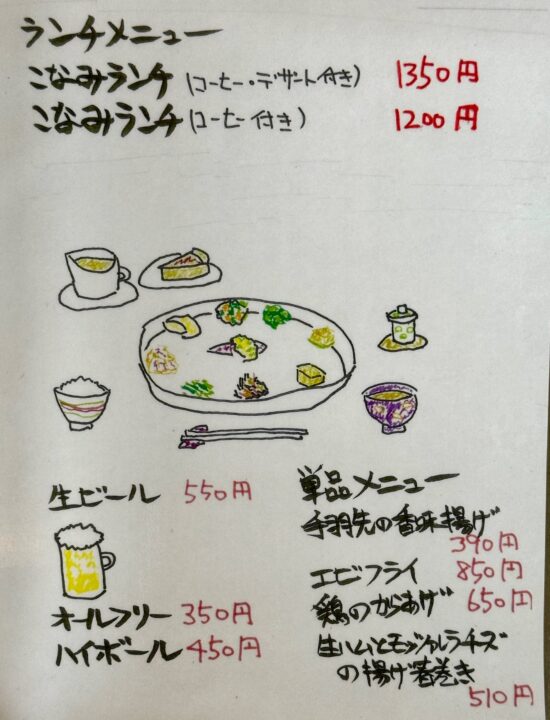 ランチメニュー
こなみランチ(コーヒー・デザート付き) 1350円
こなみランチ(コーヒー付き) 1200円
生ビール 550円
オールフリー 350円
ハイボール 450円
単品メニュー
手羽先の香味揚げ
390円
エビフライ 850円
鶏のからあげ 650円
生ハムとモッツァレラチーズ
の揚げ春巻き
510円